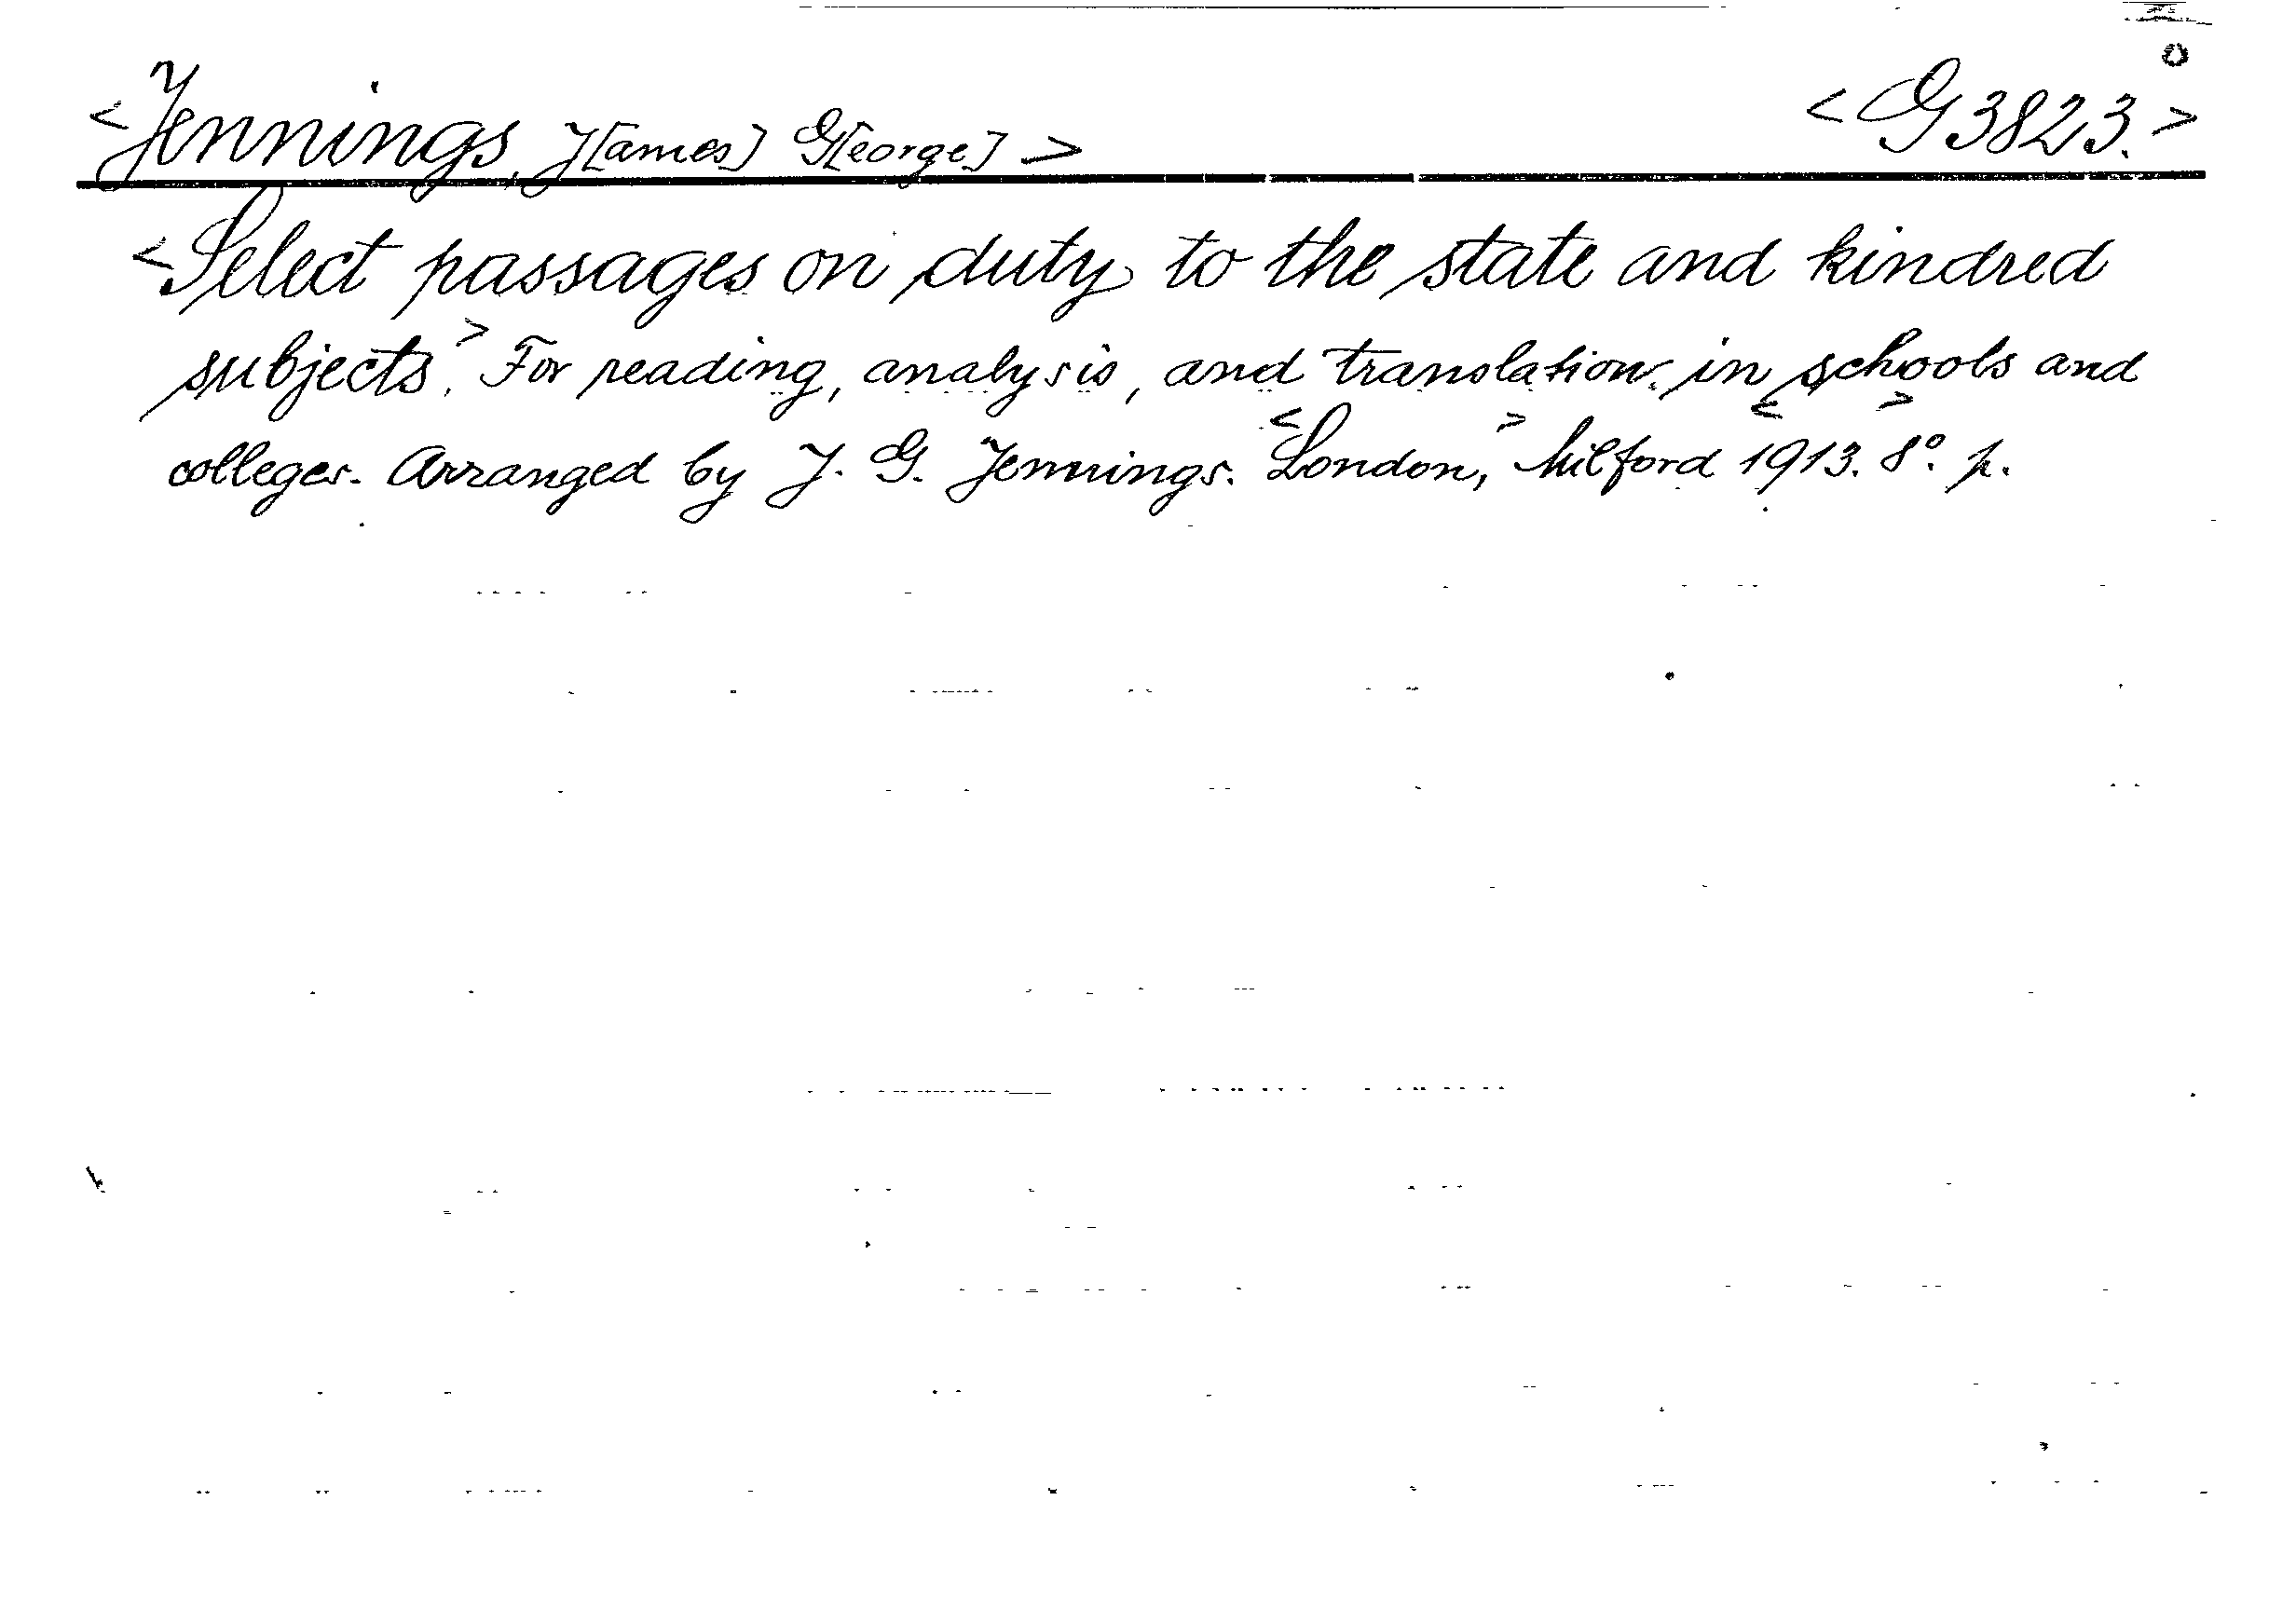 <Jennings, J[ames] G[eorge]> <G3823.>
<Select passages on duty to the state and kindred
subjects.> For reading, analysis, and translation in schools and
colleges. Arranged by J. G. Jennings. <London,> Milford <1913.> 8°. p.